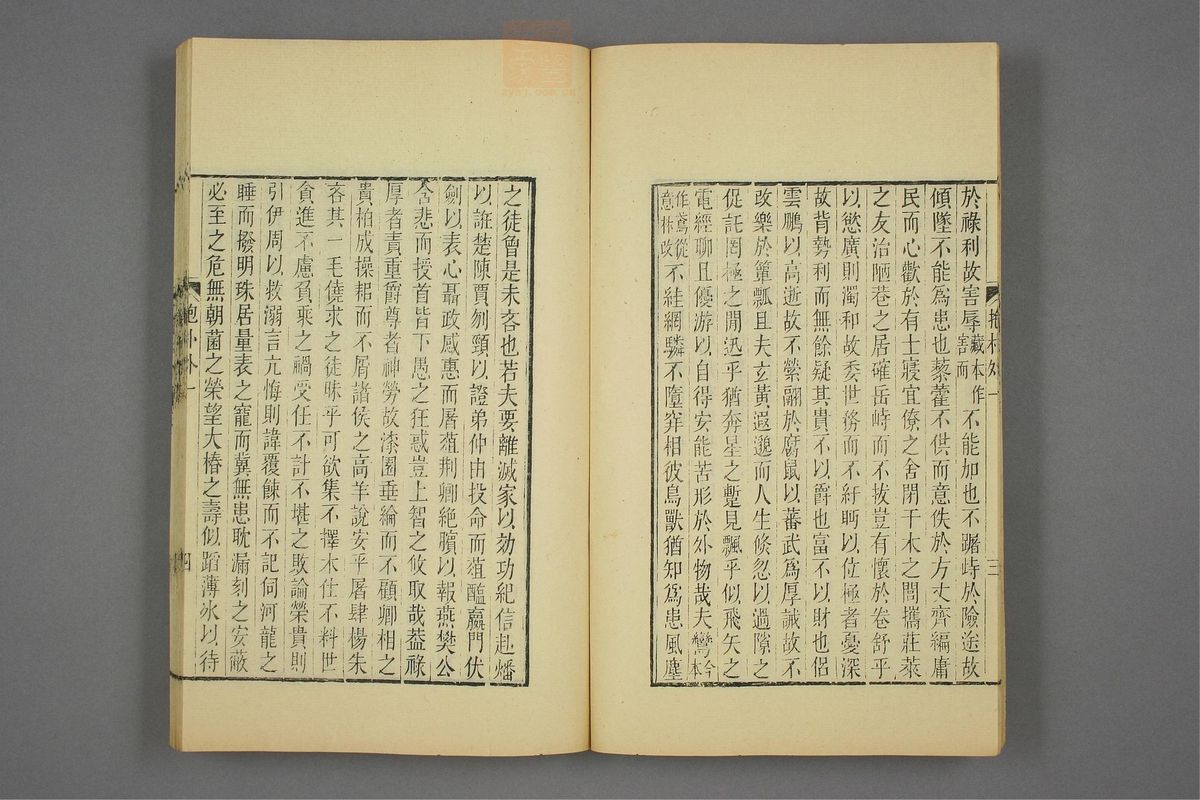 於祿利故害辱藏本作害而不能加也不躇峙於險途故
傾墜不能爲患也藜藿不供而意佚於方丈齊編庸
民而心歡於有土寢宜僚之舍閉干木之閭攜莊萊
之友治陋巷之居確岳峙而不拔豈有懷於卷舒乎
以慾廣則濁和故委世務而不紆眄以位極者憂深
故背勢利而無餘疑其貴不以爵也富不以財也侶
雲鵬以高逝故不縈翮於腐鼠以蕃武爲厚誡故不
改樂於簞瓢且夫玄黃遐邈而人生倏忽以過隙之
促託罔極之閒迅乎猶奔星之蹔見飄乎似飛矢之
電經聊且優游以自得安能苦形於外物哉夫鸞今本
作鳶從意林改不絓網驎不墮穽相彼鳥獸猶知爲患風塵
抱朴外一
三
之徒曾是未吝也若夫要離滅家以効功紀信赴燔
以誑楚陳賈刎頸以證弟仲由投命而葅醢嬴門伏
劍以表心聶政感惠而屠葅荆卿絕臏以報燕樊公
含悲而授首皆下愚之狂惑豈上智之攸取哉葢祿
厚者責重爵尊者神勞故漆園垂綸而不顧卿相之
貴柏成操耜而不屑諸侯之高羊說安乎屠肆楊朱
吝其一毛僥求之徒昧乎可欲集不擇木仕不料世
貪進不慮負乘之禍受任不計不堪之敗論榮貴則
引伊周以救溺言亢悔則諱覆餗而不記伺河龍之
睡而撥明珠居量表之寵而冀無患耽漏刻之安蔽
必至之危無朝菌之榮望大椿之壽似蹈薄冰以待
抱朴外一
四